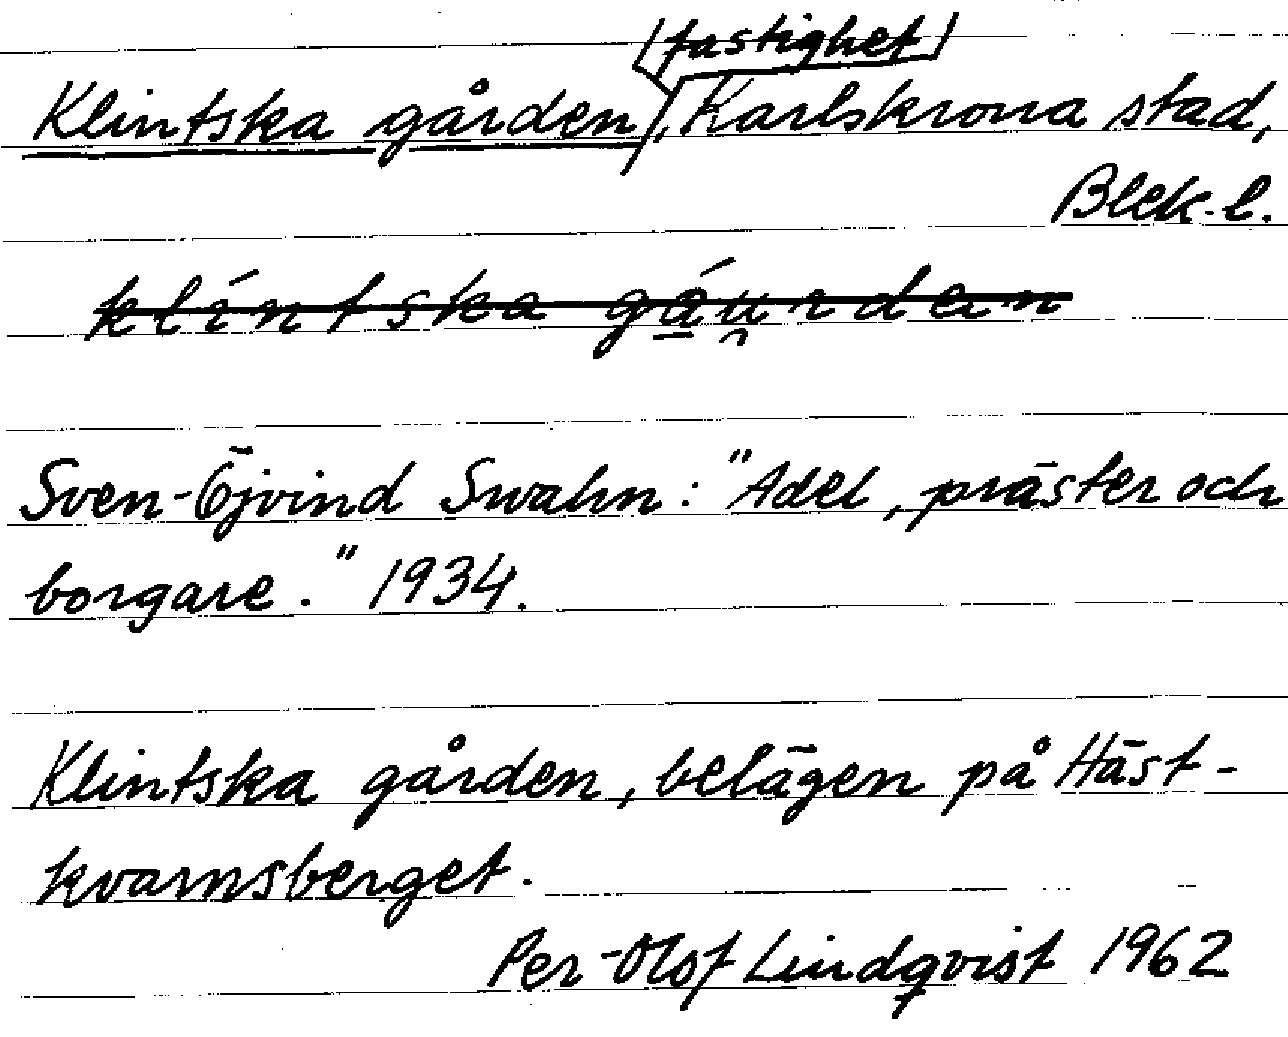 (fastighet)
Klintska gården, Karlskrona stad,
Blek. l.
klíntska gáu̯rden
Sven-Öjvind Swahn: "Adel, präster och
borgare." 1934.
Klintska gården, belägen på Häst-
kvarnsberget.
Per-Olof Lindqvist 1962